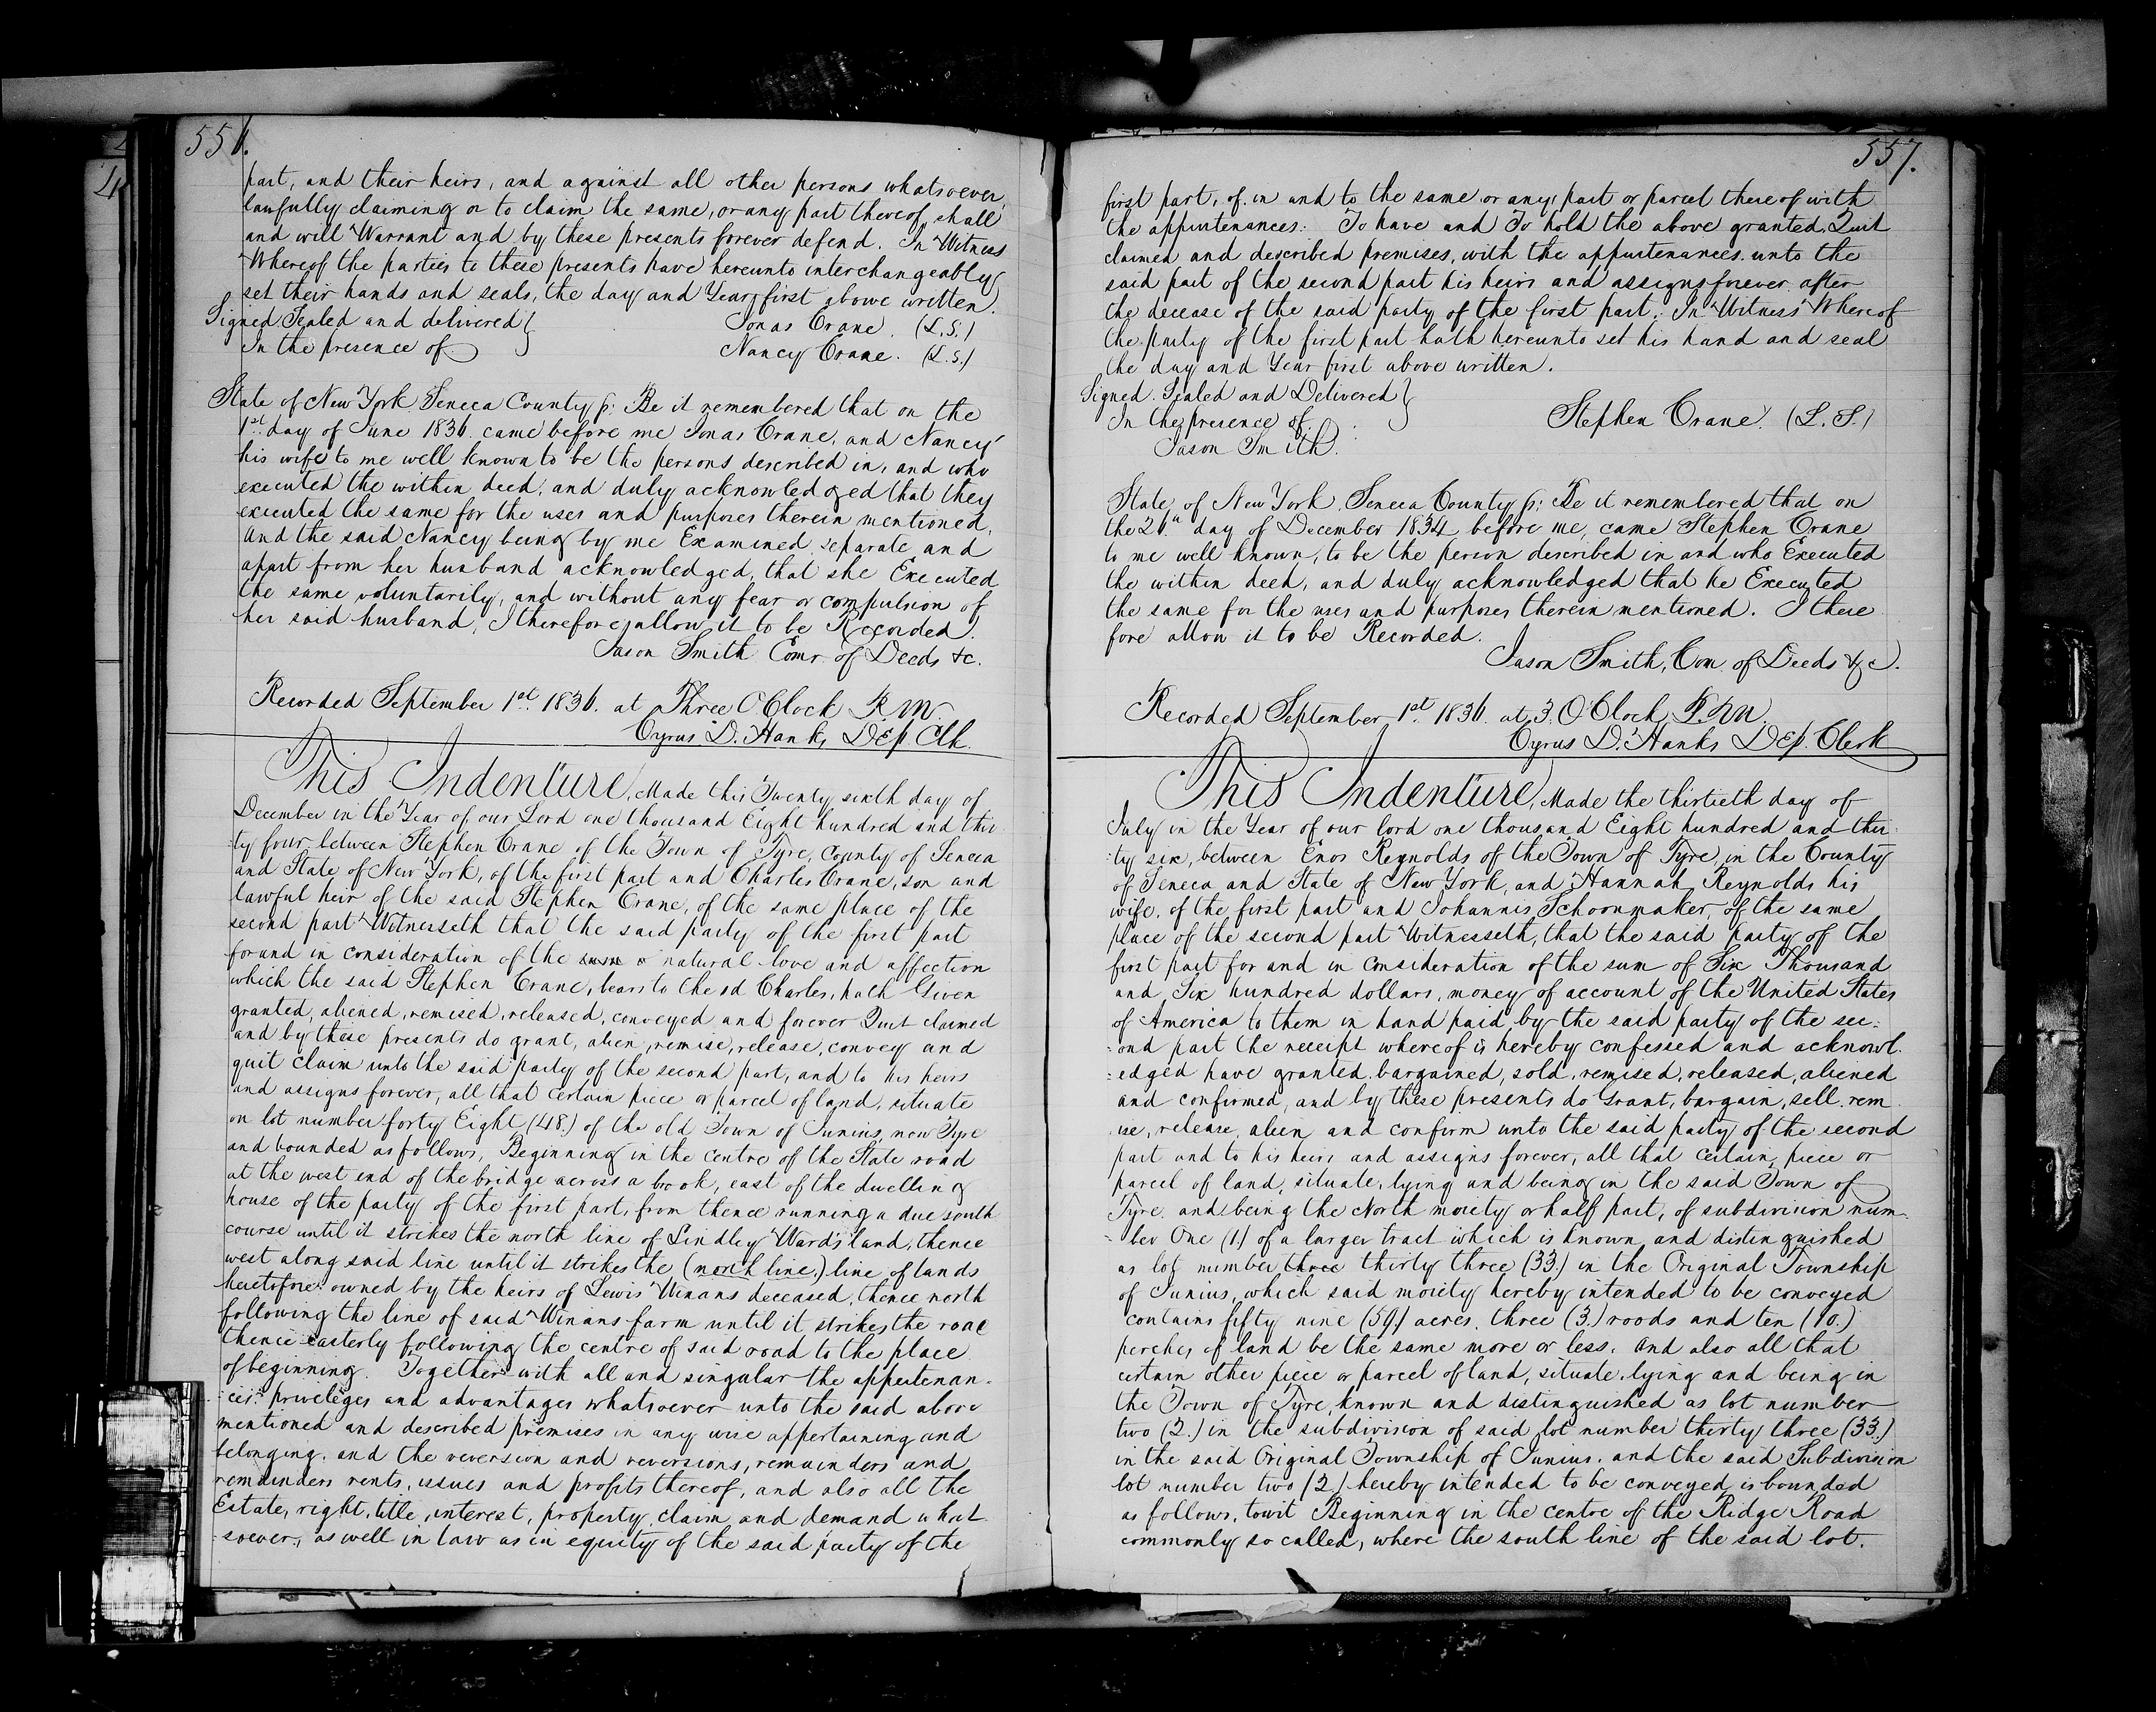 556.
part, and their heirs, and against all other persons whatsoever,
lawfully claiming or to claim the same, or any part thereof, shall
and will Warrant and by these presents forever defend. In Witness
Whereof the parties to these presents have hereunto interchangeably
set their hands and seals, the day and Year first above written.
Signed Sealed and delivered } Jonas Crane. (L.S.)
In the presence of } Nancy Crane. (L.S.)
State of New York Seneca County ss: Be it remembered that on the
1st day of June 1836. came before me Jonas Crane, and Nancy
his wife to me well known to be the persons described in, and who
executed the within deed, and duly acknowledged that they
executed the same for the uses and purposes therein mentioned,
and the said Nancy being by me Examined separate and
apart from her husband acknowledged, that she Executed
the same voluntarily, and without any fear or compulsion of
her said husband, I therefore allow it to be Recorded.
Jason Smith Comr. of Deeds &c.
Recorded September 1st. 1836. at Three O Clock P.M.
Cyrus D. Hanks Dep. Clk.
This Indenture, Made this Twenty sixth day of
December in the Year of our Lord one thousand Eight hundred and thir
-ty four between Stephen Crane of the Town of Tyre, County of Seneca
and State of New York, of the first part and Charles Crane, son and
lawful heir of the said Stephen Crane, of the same place of the
second part Witnesseth that the said party of the first part
for and in consideration of the natural love and affection
which the said Stephen Crane, bears to the sd Charles, hath Given
granted, aliened, remised, released, conveyed and forever Quit claimed
and by these presents do grant, alien, remise, release, convey and
quit claim unto the said party of the second part, and to his heirs
and assigns forever, all that certain piece or parcel of land, situate
on lot number forty Eight (48.) of the old Town of Junius, now Tyre
and bounded as follows, Beginning in the centre of the State road
at the west end of the bridge across a brook, east of the dwelling
house of the party of the first part, from thence running a due south
course until it strikes the north line of Lindley Ward's land, thence
west along said line until it strikes the (north line,) line of lands
heretofore owned by the heirs of Lewis Winans deceased, thence north
following the line of said Winans farm until it strikes the road
thence easterly following the centre of said road to the place
of beginning. Together with all and singular the appertenan-
-ces: priveleges and advantages whatsoever unto the said above
mentioned and described premises in any wise appertaining and
belonging, and the reversion and reversions, remainders and
remainders rents, issues and profits thereof, and also all the
Estate, right, title, interest, property, claim and demand what
-soever, as well in law as in equity of the said party of the
557.
first part, of, in and to the same or any part or parcel thereof with
the appurtenances: To have and To hold the above granted, Quit
claimed and described premises, with the appurtenances unto the
said part of the second part his heirs and assigns forever after
the decease of the said party of the first part. In Witness Whereof
the party of the first part hath hereunto set his hand and seal
the day and Year first above written.
Signed Sealed and Delivered }
In the presence of } Stephen Crane. (L.S.)
Jason Smith.
State of New York, Seneca County ss: Be it remembered that on
the 26th day of December 1834, before me, came Stephen Crane
to me well known, to be the person described in and who Executed
the within deed, and duly acknowledged that he Executed
the same for the uses and purposes therein mentioned. I there
fore allow it to be Recorded.
Jason Smith, Com of Deeds &c.
Recorded September 1st. 1836. at 3. O'Clock P.M.
Cyrus D. Hanks Dep. Clerk
This Indenture, Made the thirtieth day of
July in the Year of our lord one thousand Eight hundred and thir-
-ty six, between Enos Reynolds of the Town of Tyre, in the County
of Seneca and State of New York, and Hannah Reynolds his
wife, of the first part and Johannis Schoonmaker, of the same
place of the second part Witnesseth, that the said party of the
first part for and in consideration of the sum of Six Thousand
and Six hundred dollars, money of account of the United States
of America to them in hand paid by the said party of the sec-
-ond part the receipt whereof is hereby confessed and acknowl-
-edged have granted, bargained, sold, remised, released, aliened
and confirmed, and by these presents do Grant, bargain, sell, rem
ise, release, alien and confirm unto the said party of the second
part and to his heirs and assigns forever, all that certain piece or
parcel of land, situate, lying and being in the said Town of
Tyre. and being the North moiety or half part, of subdivision num-
-ber One (1.) of a larger tract which is known and distinguished
as lot number three thirty three (33.) in the Original Township
of Junius, which said moiety hereby intended to be conveyed
contains fifty nine (59.) acres, three (3.) roods and ten (10.)
perches of land be the same more or less. and also all that
certain other piece or parcel of land, situate, lying and being in
the Town of Tyre, known and distinguished as lot number
two (2.) in the subdivision of said lot number thirty three (33.)
in the said Original Township of Junius. and the said Subdivision
lot number two (2.) hereby intended to be conveyed is bounded
as follows, towit Beginning in the centre of the Ridge Road
commonly so called, where the south line of the said lot.